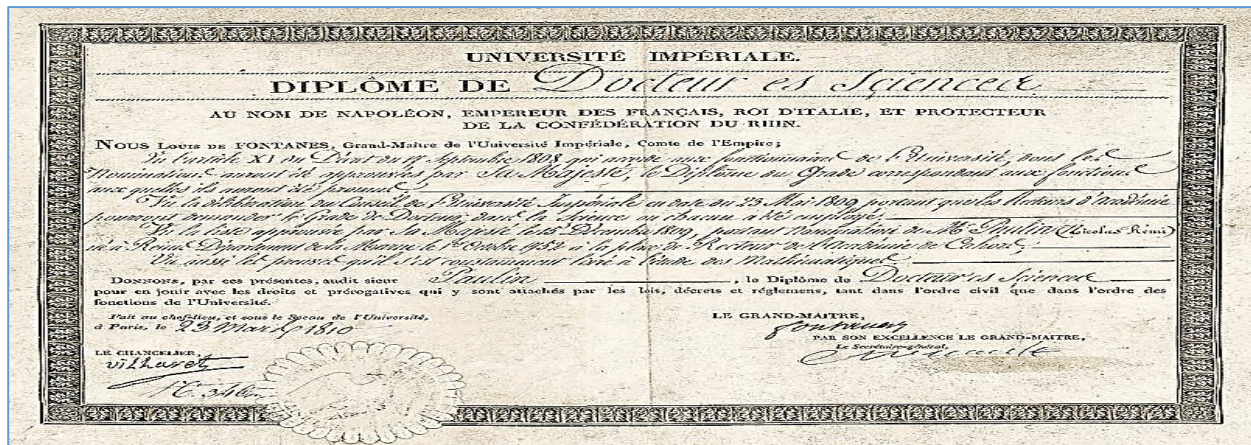 UNIVERSITÉ IMPÉRIALE.
DIPLÔME DE Docteur es Sciences
AU NOM DE NAPOLÉON, EMPEREUR DES FRANÇAIS, ROI D'ITALIE, ET PROTECTEUR
DE LA CONFÉDÉRATION DU RHIN.
NOUS LOUIS DE FONTANES, Grand-Maître de l'Université Impériale, Comte de l'Empire;
Vu l'article XI du Décret du 17 Septembre 1808 qui accorde aux fonctionnaires de l'Université, dont les
Nominations auront été approuvées par Sa Majesté, le Diplôme du Grade correspondant aux fonctions
aux quelles ils auront été promus
Vu la délibération du Conseil de l'Université Impériale en date du 23 Mai 1809 portant que les Recteurs d'académie
pourront demander le Grade de Docteur dans la Science où chacun a été employé;
Vu la liste approuvée par Sa Majesté le 15 Décembre 1809, portant nomination de Mr Paulin (Nicolas Rémi)
né à Reims Département de la Marne le 1er Octobre à la place de Recteur de l'académie de Cahors;
Vu aussi les preuves qu'il s'est constamment livré à l'étude des Mathématiques
DONNONS, par ces présentes, audit sieur Paulin, le Diplôme de Docteur es Sciences
pour en jouir avec les droits et prérogatives qui y sont attachés par les lois, décrets et réglemens, tant dans l'ordre civil que dans l'ordre des
fonctions de l'Université.
Fait au chef-lieu, et sous le Sceau de l'Université,
à Paris, le 23 Mars 1810
LE GRAND-MAITRE,
Fontanes
PAR SON EXCELLENCE LE GRAND-MAITRE,
Le Secrétaire-général,
LE CHANCELIER,
Villaret